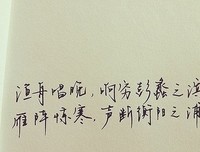 渔舟唱晚,响穷彭蠡之滨
雁阵惊寒,声断衡阳之浦